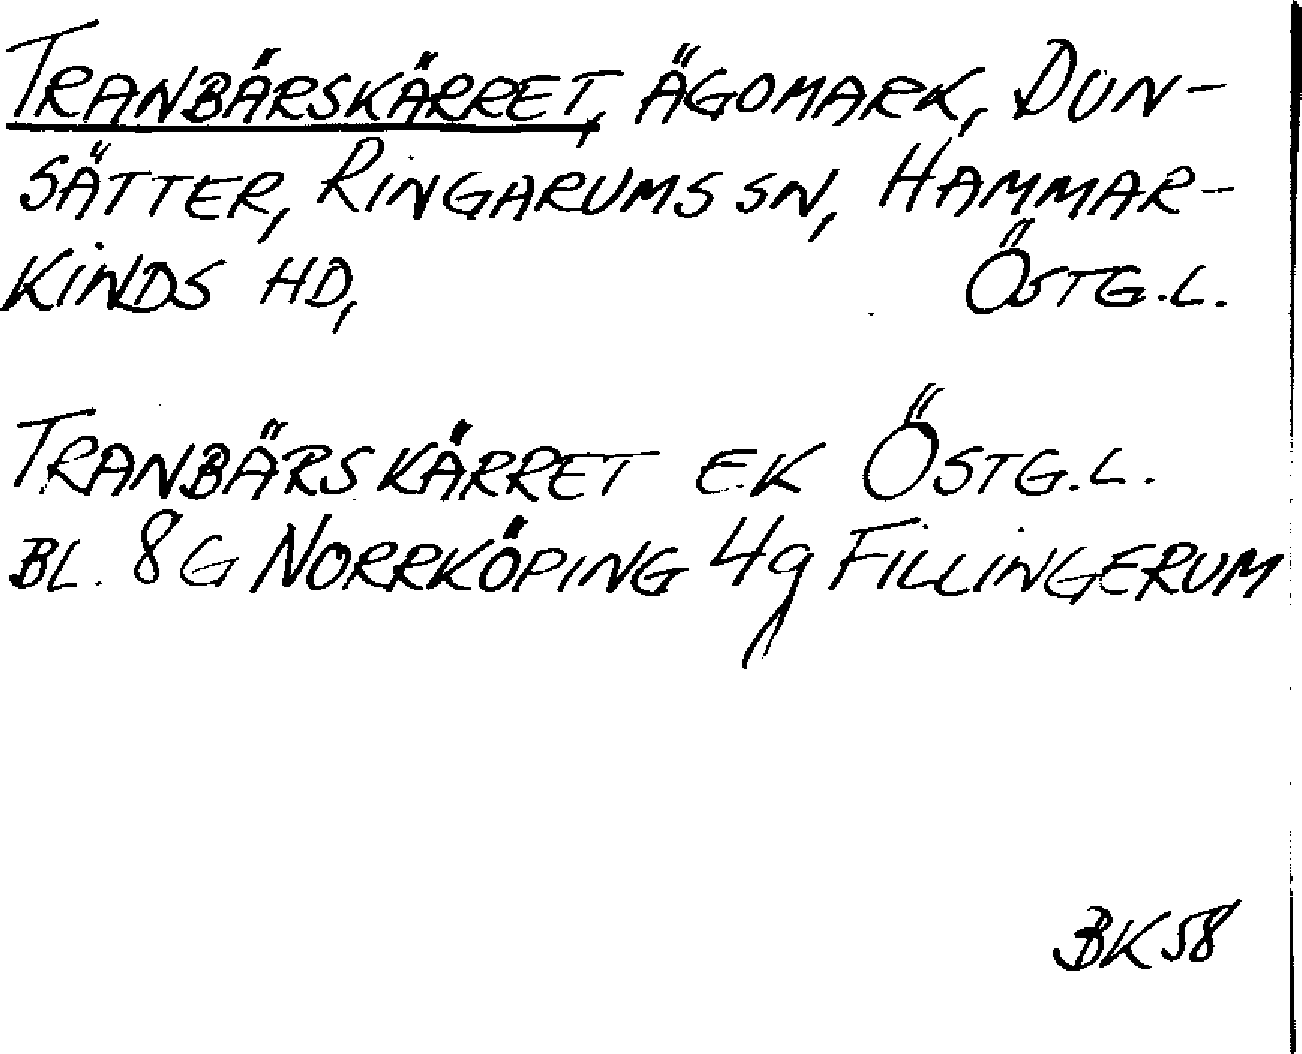 TRANBÄRSKÄRRET, ÄGOMARK, DUN-
SÄTTER, RINGARUMS SN, HAMMAR-
KINDS HD, ÖSTG.L.
TRANBÄRSKÄRRET EK ÖSTG.L.
BL. 8G NORRKÖPING 4g FILLINGERUM
BK58